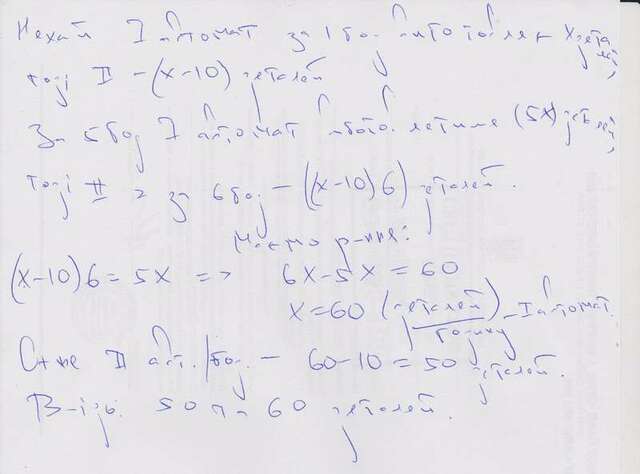 Нехай I автомат за 1 год виготовляє x деталей,
тоді II – (x–10) деталей
За 5 год I автомат виготовлятиме (5x) деталей,
тоді II за 6 год – ((x–10)6) деталей.
Маємо р-ння:
(x–10)6=5x => 6x–5x=60
x=60 (деталей/годину) – I автомат.
Отже II авт. /год. – 60–10=50 деталей.
В-дь: 50 та 60 деталей.